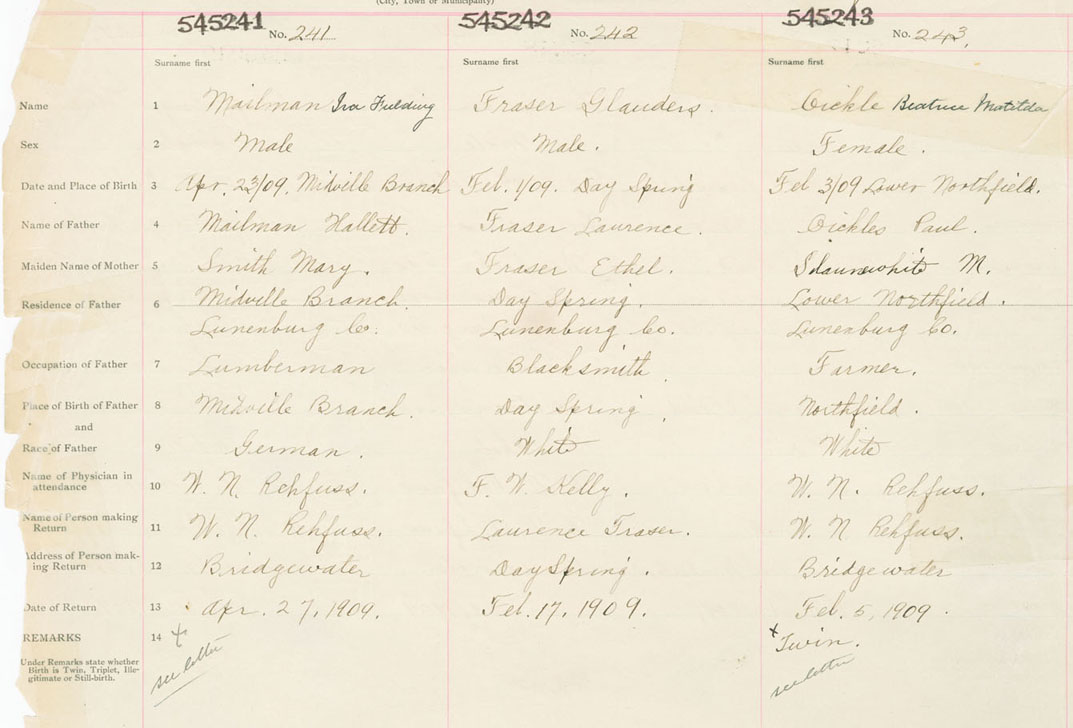 (City, Town or Municipality)
545241 No. 241 545242 No. 242 545243 No. 243.
Surname first Surname first Surname first
Name 1 Mailman Ira Fielding Fraser Glauders. Oickle Beatrice Matilda
Sex 2 Male Male. Female.
Date and Place of Birth 3 Apr. 23/09. Midville Branch Feb. 1/09. Day Spring Feb 3/09 Lower Northfield.
Name of Father 4 Mailman Hallett. Fraser Laurence. Oickles Paul.
Maiden Name of Mother 5 Smith Mary. Fraser Ethel. M.
Residence of Father 6 Midville Branch. Day Spring. Lower Northfield.
Lunenburg Co. Lunenburg Co. Lunenburg Co.
Occupation of Father 7 Lumberman Blacksmith Farmer.
Place of Birth of Father 8 Midville Branch. Day Spring. Northfield.
and
Race of Father 9 German. White White
Name of Physician in attendance 10 W. N. Rehfuss. F. W. Kelly. W. N. Rehfuss.
Name of Person making Return 11 W. N. Rehfuss. Laurence Fraser. W. N Rehfuss.
Address of Person mak-
ing Return 12 Bridgewater DaySpring. Bridgewater
Date of Return 13 Apr. 27, 1909. Feb. 17, 1909. Feb. 5, 1909.
REMARKS 14 x x Twin.
Under Remarks state whether
Birth is Twin, Triplet, Ille-
gitimate or Still-birth.
see letter see letter